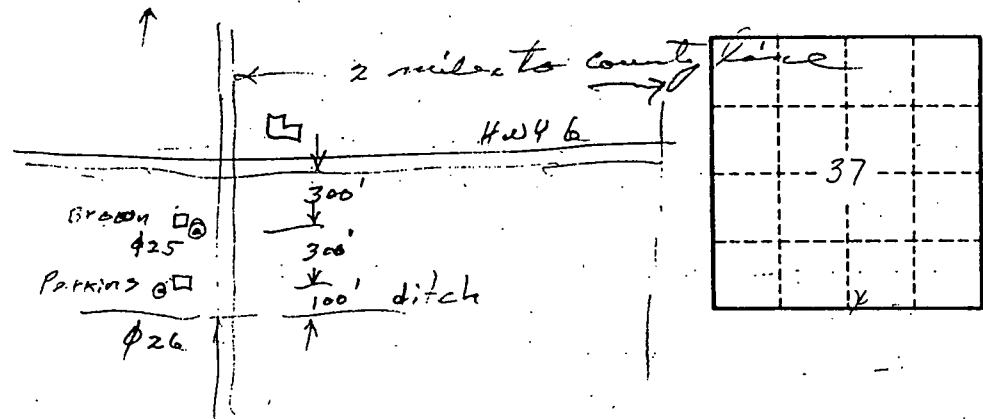 2 miles to county line
HWY 6
300'
Brown
¢25
300'
Perkins
100' ditch
¢26
37
x